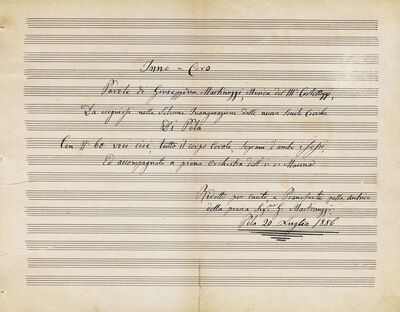 Inno - Coro
Parole di Giuseppina Martinuzzi, Musica del M°
Da eseguirsi nella Solenne Inaugurazione delle nuove Scuole
Di Pola
Con N° 60 voci cioè, tutto il corpo corale, Soprani d'ambo i sessi,
Ed accompagnato a piena Orchestra dell' i. r. Marina
Ridotto per canto, e Pianoforte
della poesia Sig.ra G. Martinuzzi.
Pola 20 Luglio 1886